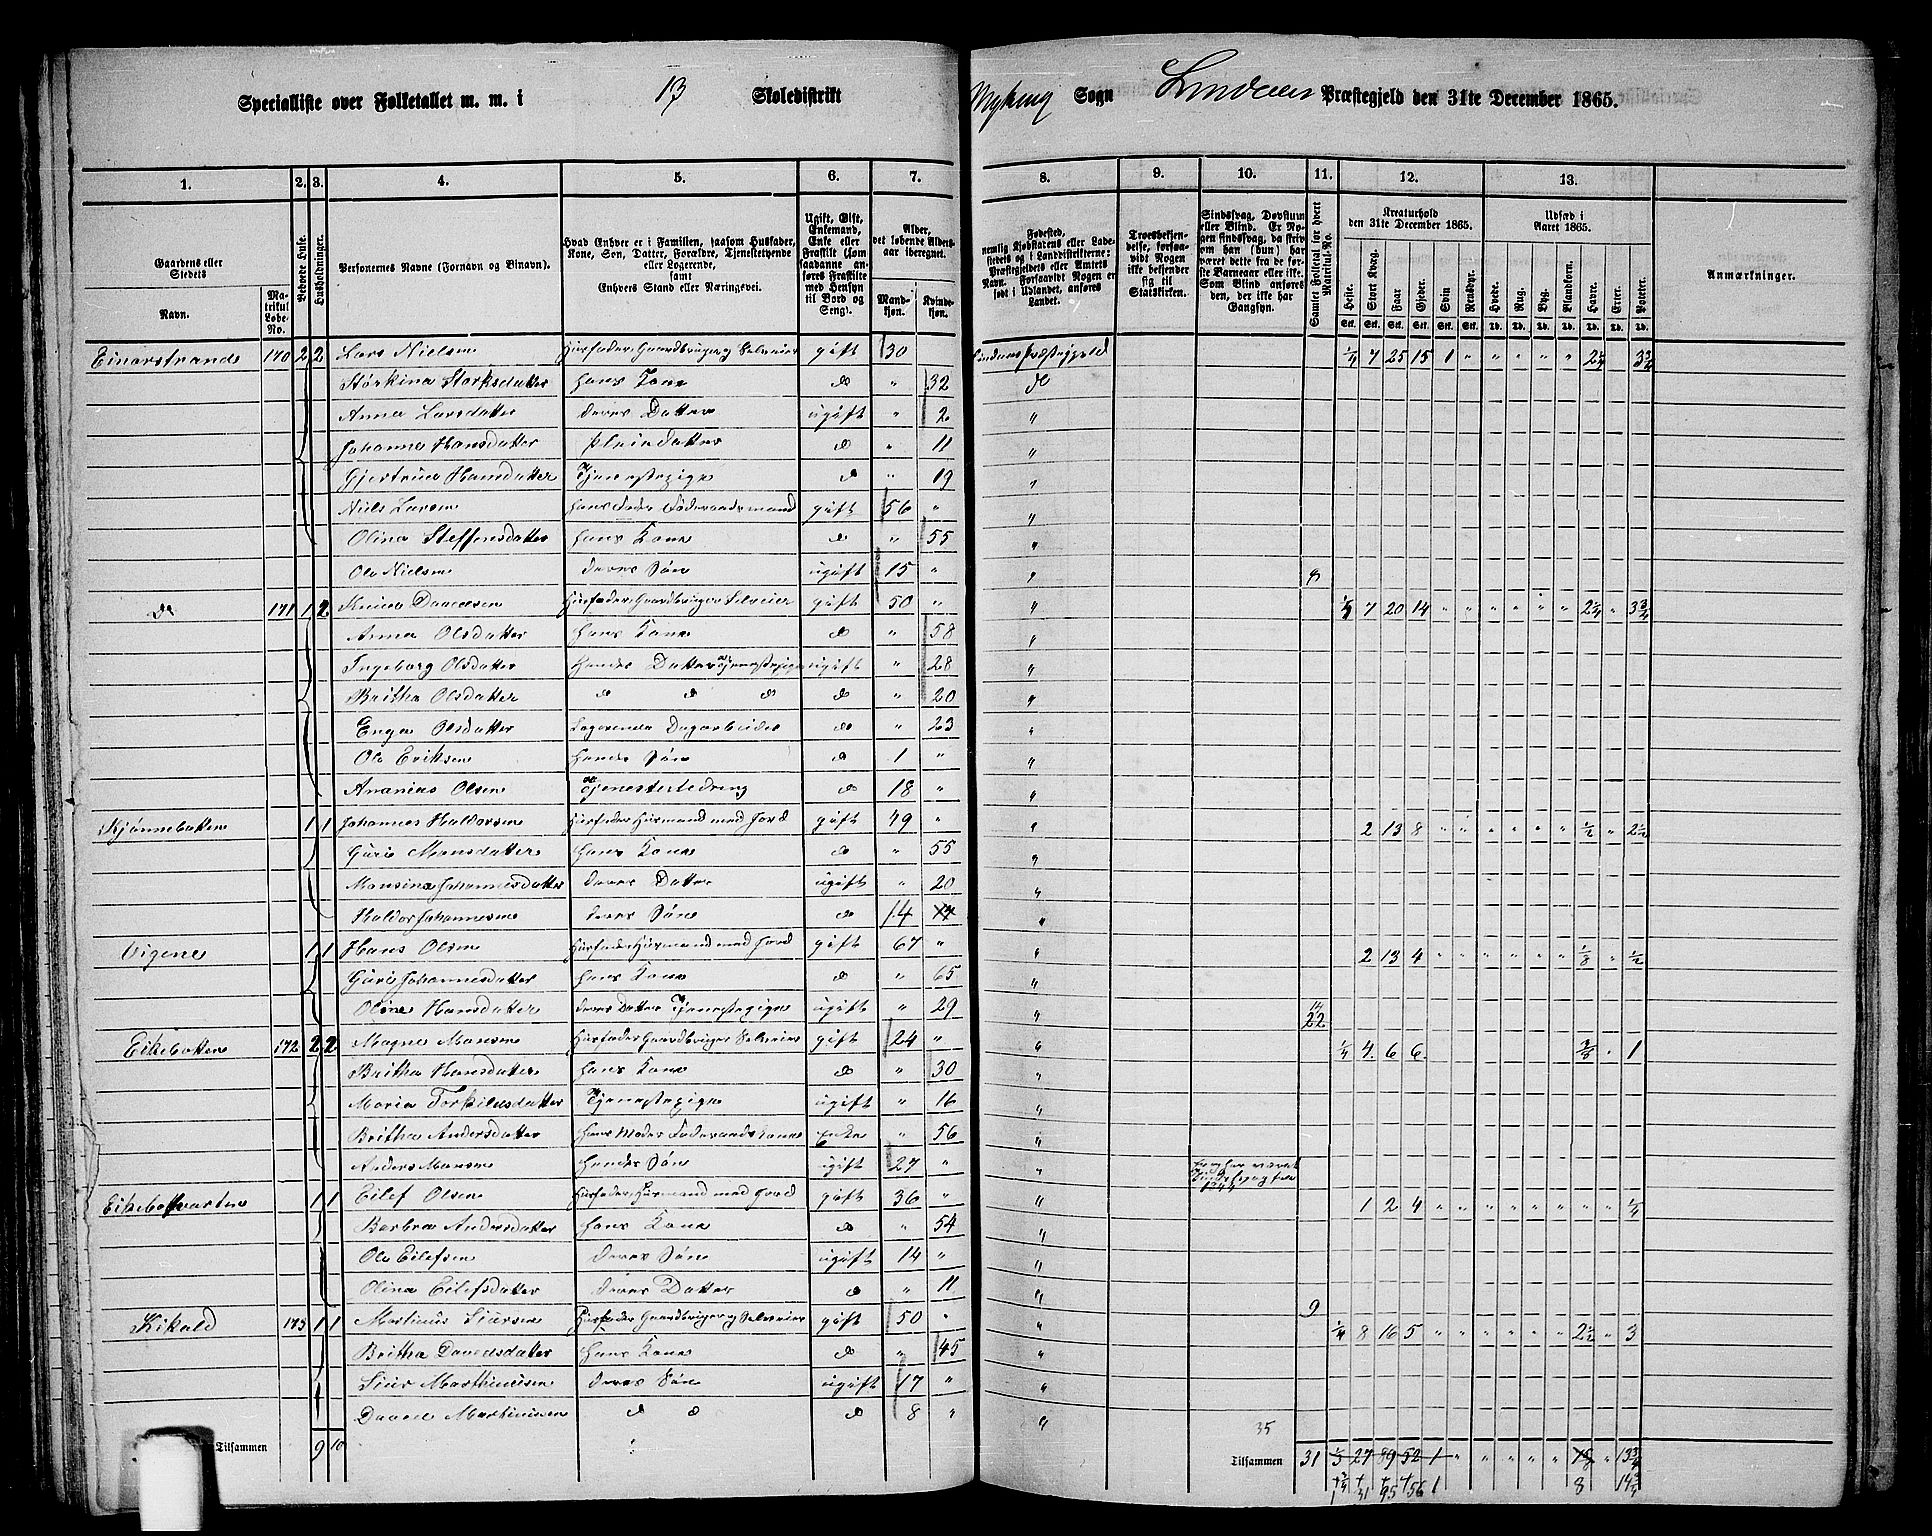 Specialliste over Folketallet m. m. i 13 Skoledistrikt Myking Sogn Lindaas Præstegjeld den 31te December 1865.
1. 2. 3. 4. 5. 6. 7. 8. 9. 10. 11. 12. 13.
Gaardens eller Stedets Navn. Matrikul Løbe-No. Beboede Huse. Husholdninger. Personernes Navne (Fornavn og Binavn).
Hvad Enhver er i Familien, saasom Husfader, Kone, Søn, Datter, Forældre, Tjenestetyende eller Logerende, samt Enhvers Stand eller Næringsvei.
Ugift, Gift, Enkemand, Enke eller Fraskilt
Alder, det løbende Alders-aar iberegnet. Mandkjøn. Kvindekjøn.
Fødested,
Troesbekjendelse, forsaavidt Nogen ikke bekjender sig til Statskirken.
Sindssvag, Døvstum eller Blind.
Samlet Folketal for hvert Matrikul-No.
Kreaturhold den 31te December 1865. Heste. Stort Kvæg. Faar. Gjeder. Svin. Rensdyr.
Udsæd i Aaret 1865. Hvede. Rug. Byg. Blandkorn. Havre. Erter. Poteter.
Anmærkninger.
Einarstrande 170 2 2 Lars Nielsen Husfader, Gaardbruger, Selveier gift 30 Lindaas Præstegjeld 1/4 7 25 15 1 " " " " " 2 1/4 3 3/4
Størkina Størksdatter Hans Kone do " 32 do
Anna Larsdatter deres Datter ugift " 2 "
Johanna Hansdatter Pleiedatter do " 11 "
Gjertrua Hansdatter Tjenestepige do " 19 "
Niels Larsen Hans Fader Føderaadsmand gift 56 " "
Olina Steffensdatter Hans Kone do " 55 "
Ole Nielsen deres Søn ugift 15 " " 8
do 171 1 2 Davidsen Husfader, Gaardbruger Selveier gift 50 " " 7 20 14 " " " " " " 2 1/4 " 3 3/4
Anna Olsdatter Hans Kone do " 58 "
Ingeborg Olsdatter Hendes Datter Tjenestepige ugift " 28 "
Britha Olsdatter do do do do " 20 "
Olsdatter Logerende Dagarbeider do " 23 "
Ole Eriksen Hendes Søn do 1 " "
Ananias Olsen do 18 " "
Kjønnebotten 1 1 Johannes Haldorsen Husfader, Huusmand med Jord gift 49 " " 2 13 8 " " " " " " 1/2 " 2 1/2
Guri Monsdatter Hans Kone do " 55 "
Monsina Johannesdatter deres Datter ugift " 20 "
Haldor Johannesen deres Søn do 14 "
Vigene 1 1 Hans Olsen Husfader, Huusmand med Jord gift 67 " " 2 13 4 " " " " " " 1/8 " 1/2
Guri Johannesdatter Hans Kone do " 65 "
Oline Hansdatter deres Datter Tjenestepige ugift " 29 " 14 22
Eikebotten 172 2 2 Magne Monsen Husfader Gaardbruger Selveier gift 24 " " 1/4 4 6 6 " 1
Britha Hansdatter Hans Kone do " 30 "
Maria Torkildsdatter Tjenestepige ugift " 16 "
Britha Andersdatter Hans Moder Føderaadskone Enke " 56 "
Anders Monsen Hendes Søn ugift 27 " "
1 1 Eilef Olsen Husfader, Huusmand med Jord gift 36 " " 1 2 4 " " " " " " " " 1/4
Barbra Andersdatter Hans Kone do " 54 "
Ole Eilefsen deres Søn ugift 14 " "
Olina Eilefsdatter deres Datter do " 11 " 9
Kikald 173 1 1 Martinus Siursen Husfader Gaardbruger, Selveier gift 50 " " 1/4 8 16 5 " " " " " " 2 1/2 " 3
Britha Davidsdatter Hans Kone do " 45 "
Siur Marthinusen deres Søn ugift 17 " "
David Martinusen do do do 8 " "
Tilsammen 9 10 35 Tilsammen 31 27 89 52 1 13 3/4
31 95 56 1 8 14 3/4